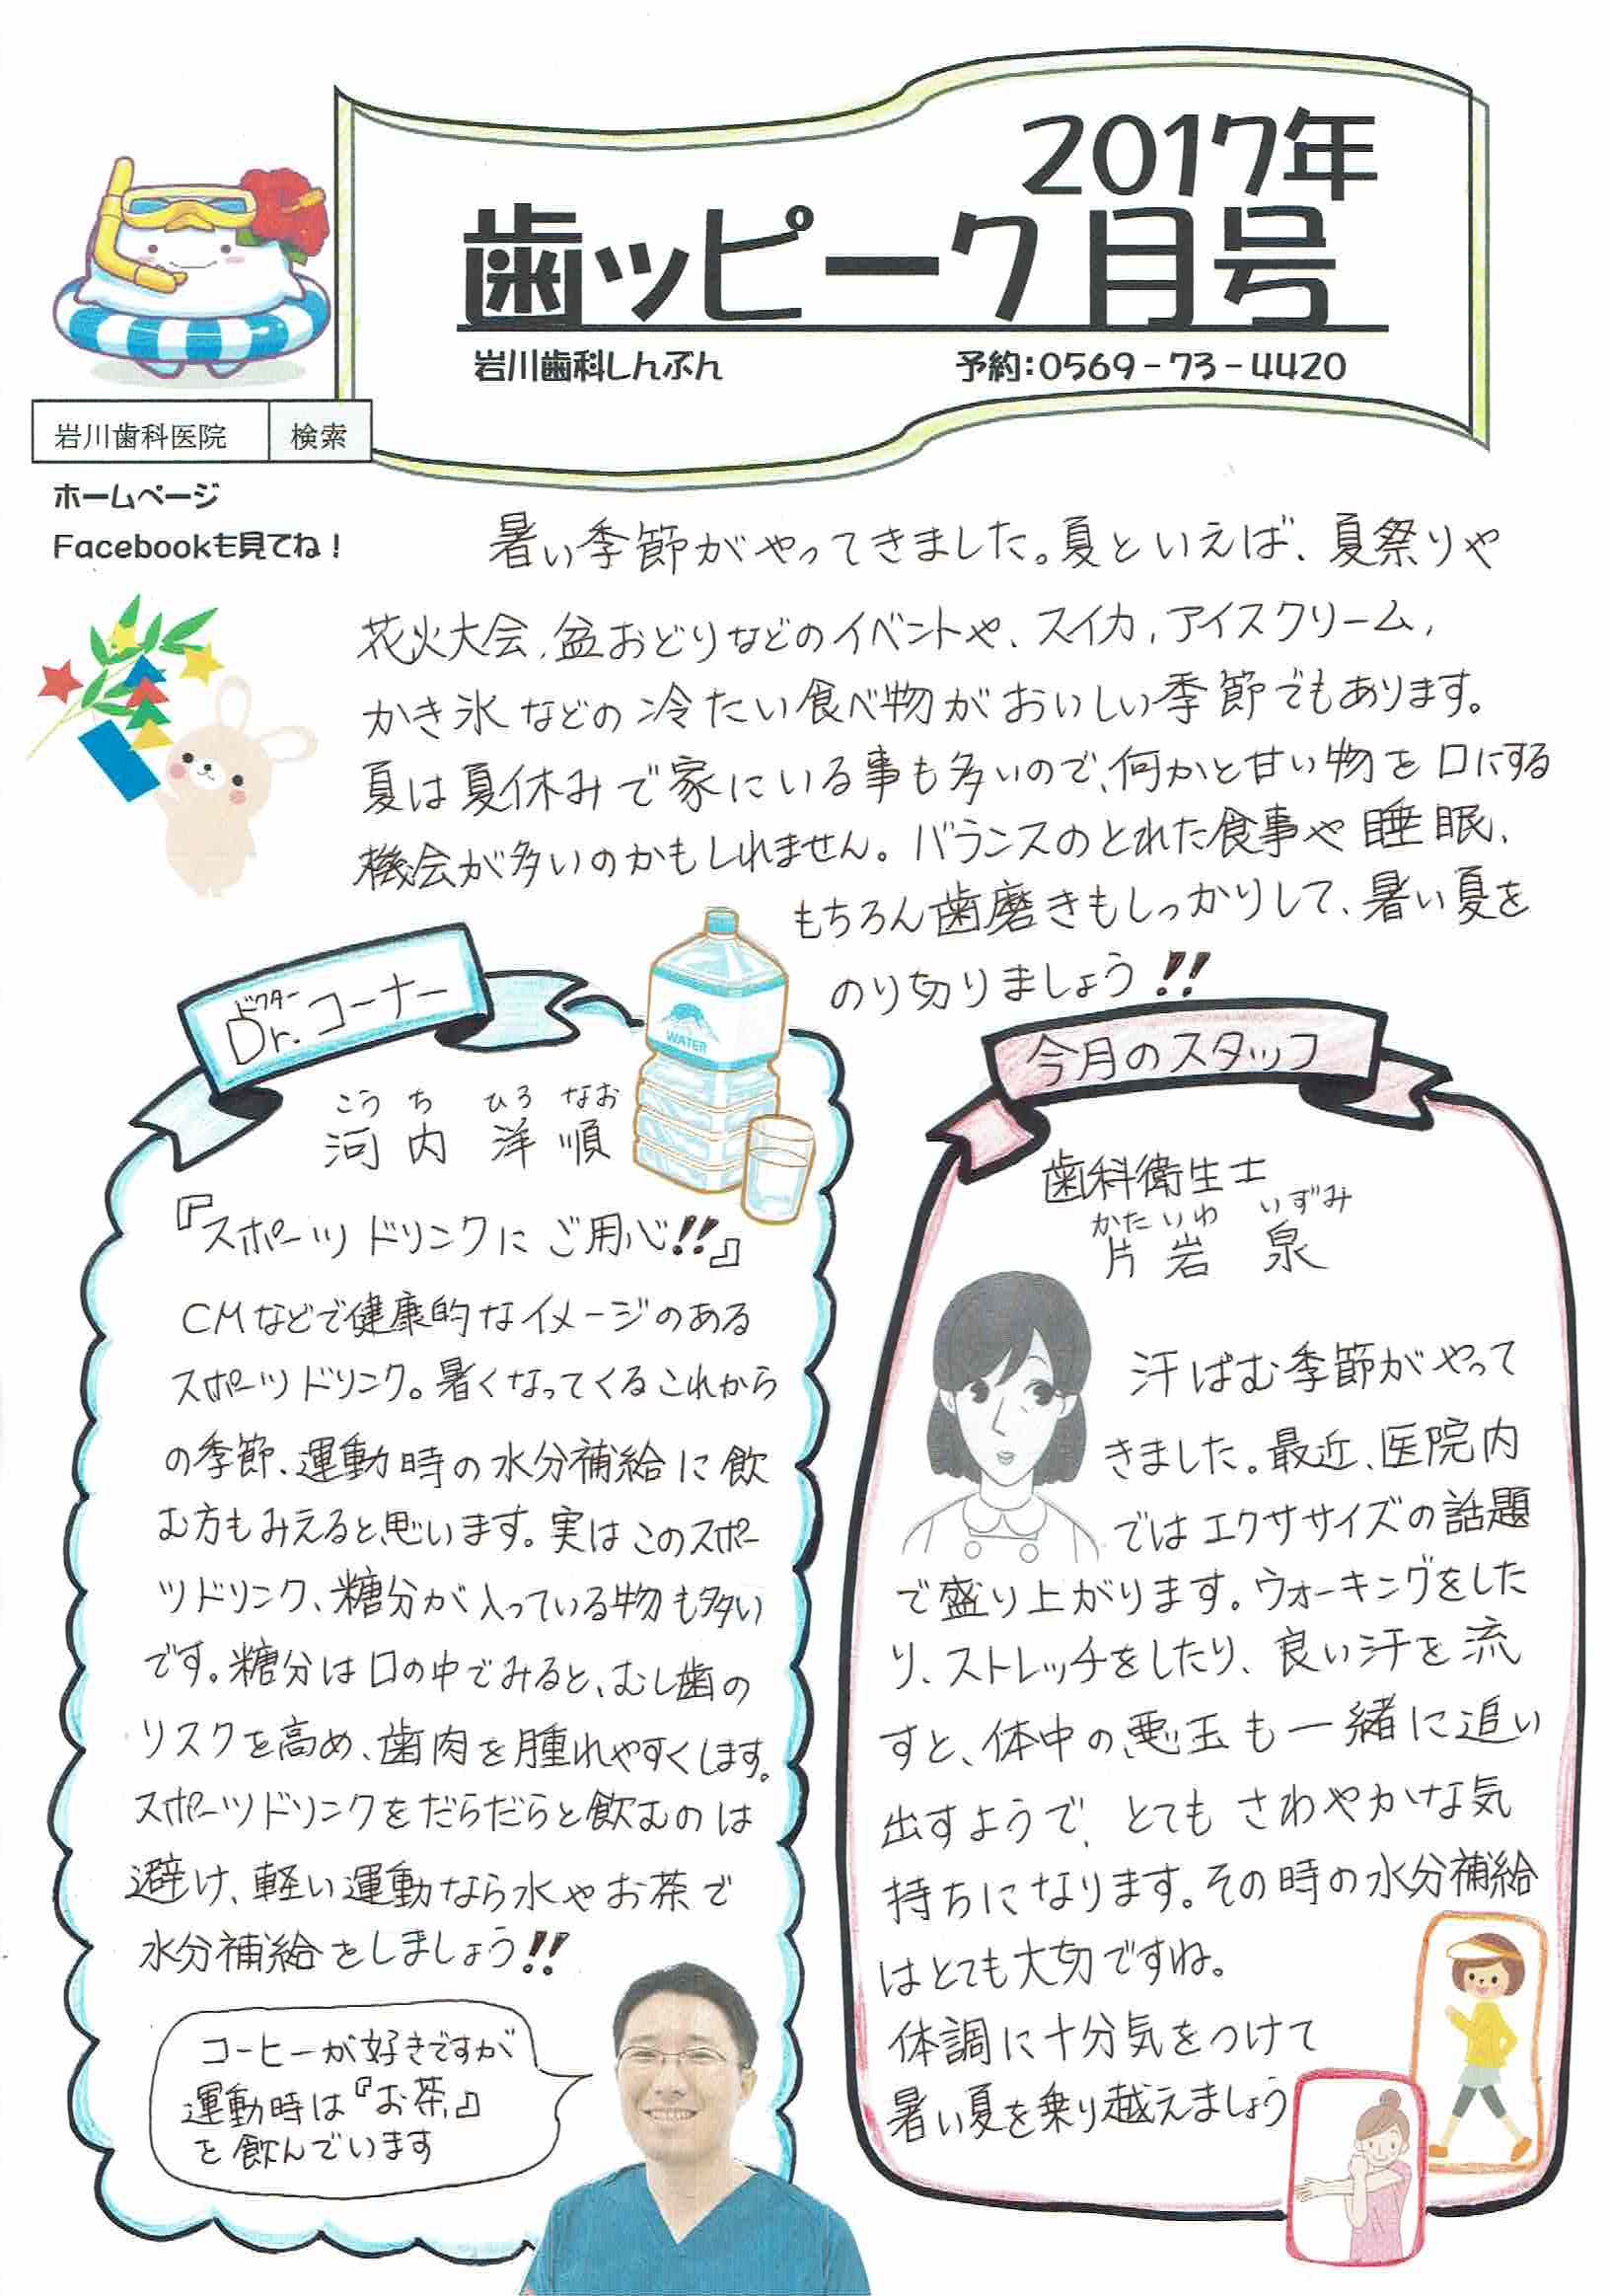 2017年
歯ッピーク月号
岩川歯科しんぶん
予約:0569-73-4420
岩川歯科医院
検索
ホームページ
Facebookも見てね!
暑い季節がやってきました。夏といえば、夏祭りや
花火大会、盆おどりなどのイベントや、スイカ、アイスクリーム、
かき氷などの冷たい食べ物がおいしい季節でもあります。
夏は夏休みで家にいる事も多いので、何かと甘い物を口にする
機会が多いのかもしれません。バランスのとれた食事や睡眠、
もちろん歯磨きもしっかりして、暑い夏を
のり切りましょう!!
ドクター
Dr.コーナー
WATER
こうち ひろなお
河内 洋順
『スポーツドリンクにご用心!!』
CMなどで健康的なイメージのある
スポーツドリンク。暑くなってくるこれから
の季節、運動時の水分補給に飲
む方もみえると思います。実はこのスポー
ツドリンク、糖分が入っている物も多い
です。糖分は口の中でみると、むし歯の
リスクを高め、歯肉を腫れやすくします。
スポーツドリンクをだらだらと飲むのは
避け、軽い運動なら水やお茶で
水分補給をしましょう!!
コーヒーが好きですが
運動時は『お茶』
を飲んでいます
今月のスタッフ
歯科衛生士
かたいわ いずみ
片岩 泉
汗ばむ季節がやって
きました。最近、医院内
ではエクササイズの話題
で盛り上がります。ウォーキングをした
り、ストレッチをしたり、良い汗を流
すと、体中の悪玉も一緒に追い
出すようで、とてもさわやかな気
持ちになります。その時の水分補給
はとても大切ですね。
体調に十分気をつけて
暑い夏を乗り越えましょう